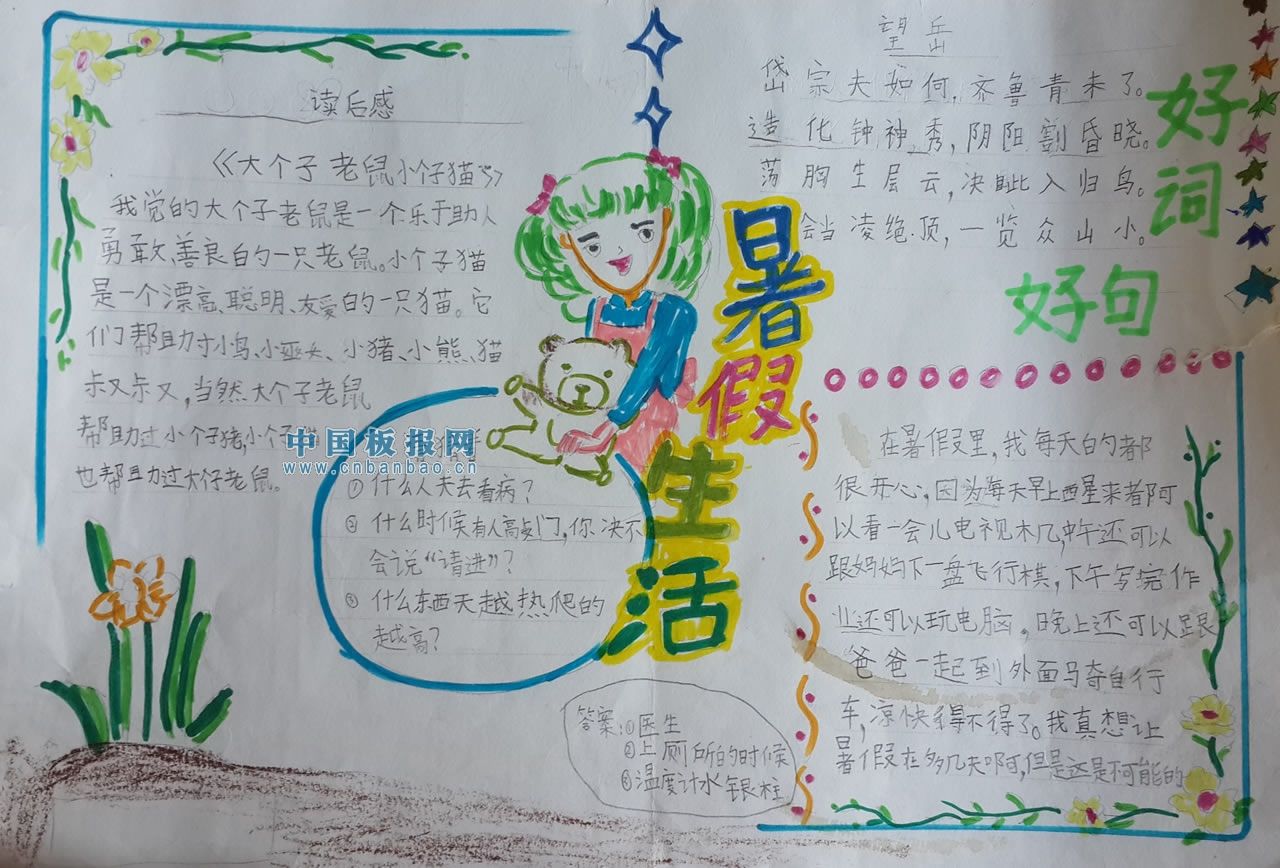 读后感
《大个子老鼠小个子猫5》
我觉的大个子老鼠是一个乐于助人
勇敢、善良白勺一只老鼠。小个子猫
是一个漂亮、聪明、友爱的一只猫。它
们帮助过小鸟、小巫女、小猪、小熊、猫
叔叔，当然大个子老鼠
帮助过小个子猪，小个子猫
也帮助过大个子老鼠。
中国板报网
www.cnbanbao.cn
①什么人天天去看病？
②什么时候有人高声敲门，你决不
会说“请进”？
③什么东西天越热爬的
越高？
答案：①医生
②上厕所的时候
③温度计水银柱
暑假生活
望岳
岱宗夫如何，齐鲁青未了。
造化钟神秀，阴阳割昏晓。
荡胸生层云，决眦入归鸟。
会当凌绝顶，一览众山小。
好词
好句
在暑假里，我每天的都
很开心，因为每天早上醒来都可
以看一会儿电视机，中午还可以
跟妈妈下一盘飞行棋，下午写完作
业还可以玩电脑，晚上还可以跟
爸爸一起到外面骑自行
车，凉快得不得了。我真想让
暑假在多几天啊，但是这是不可能的